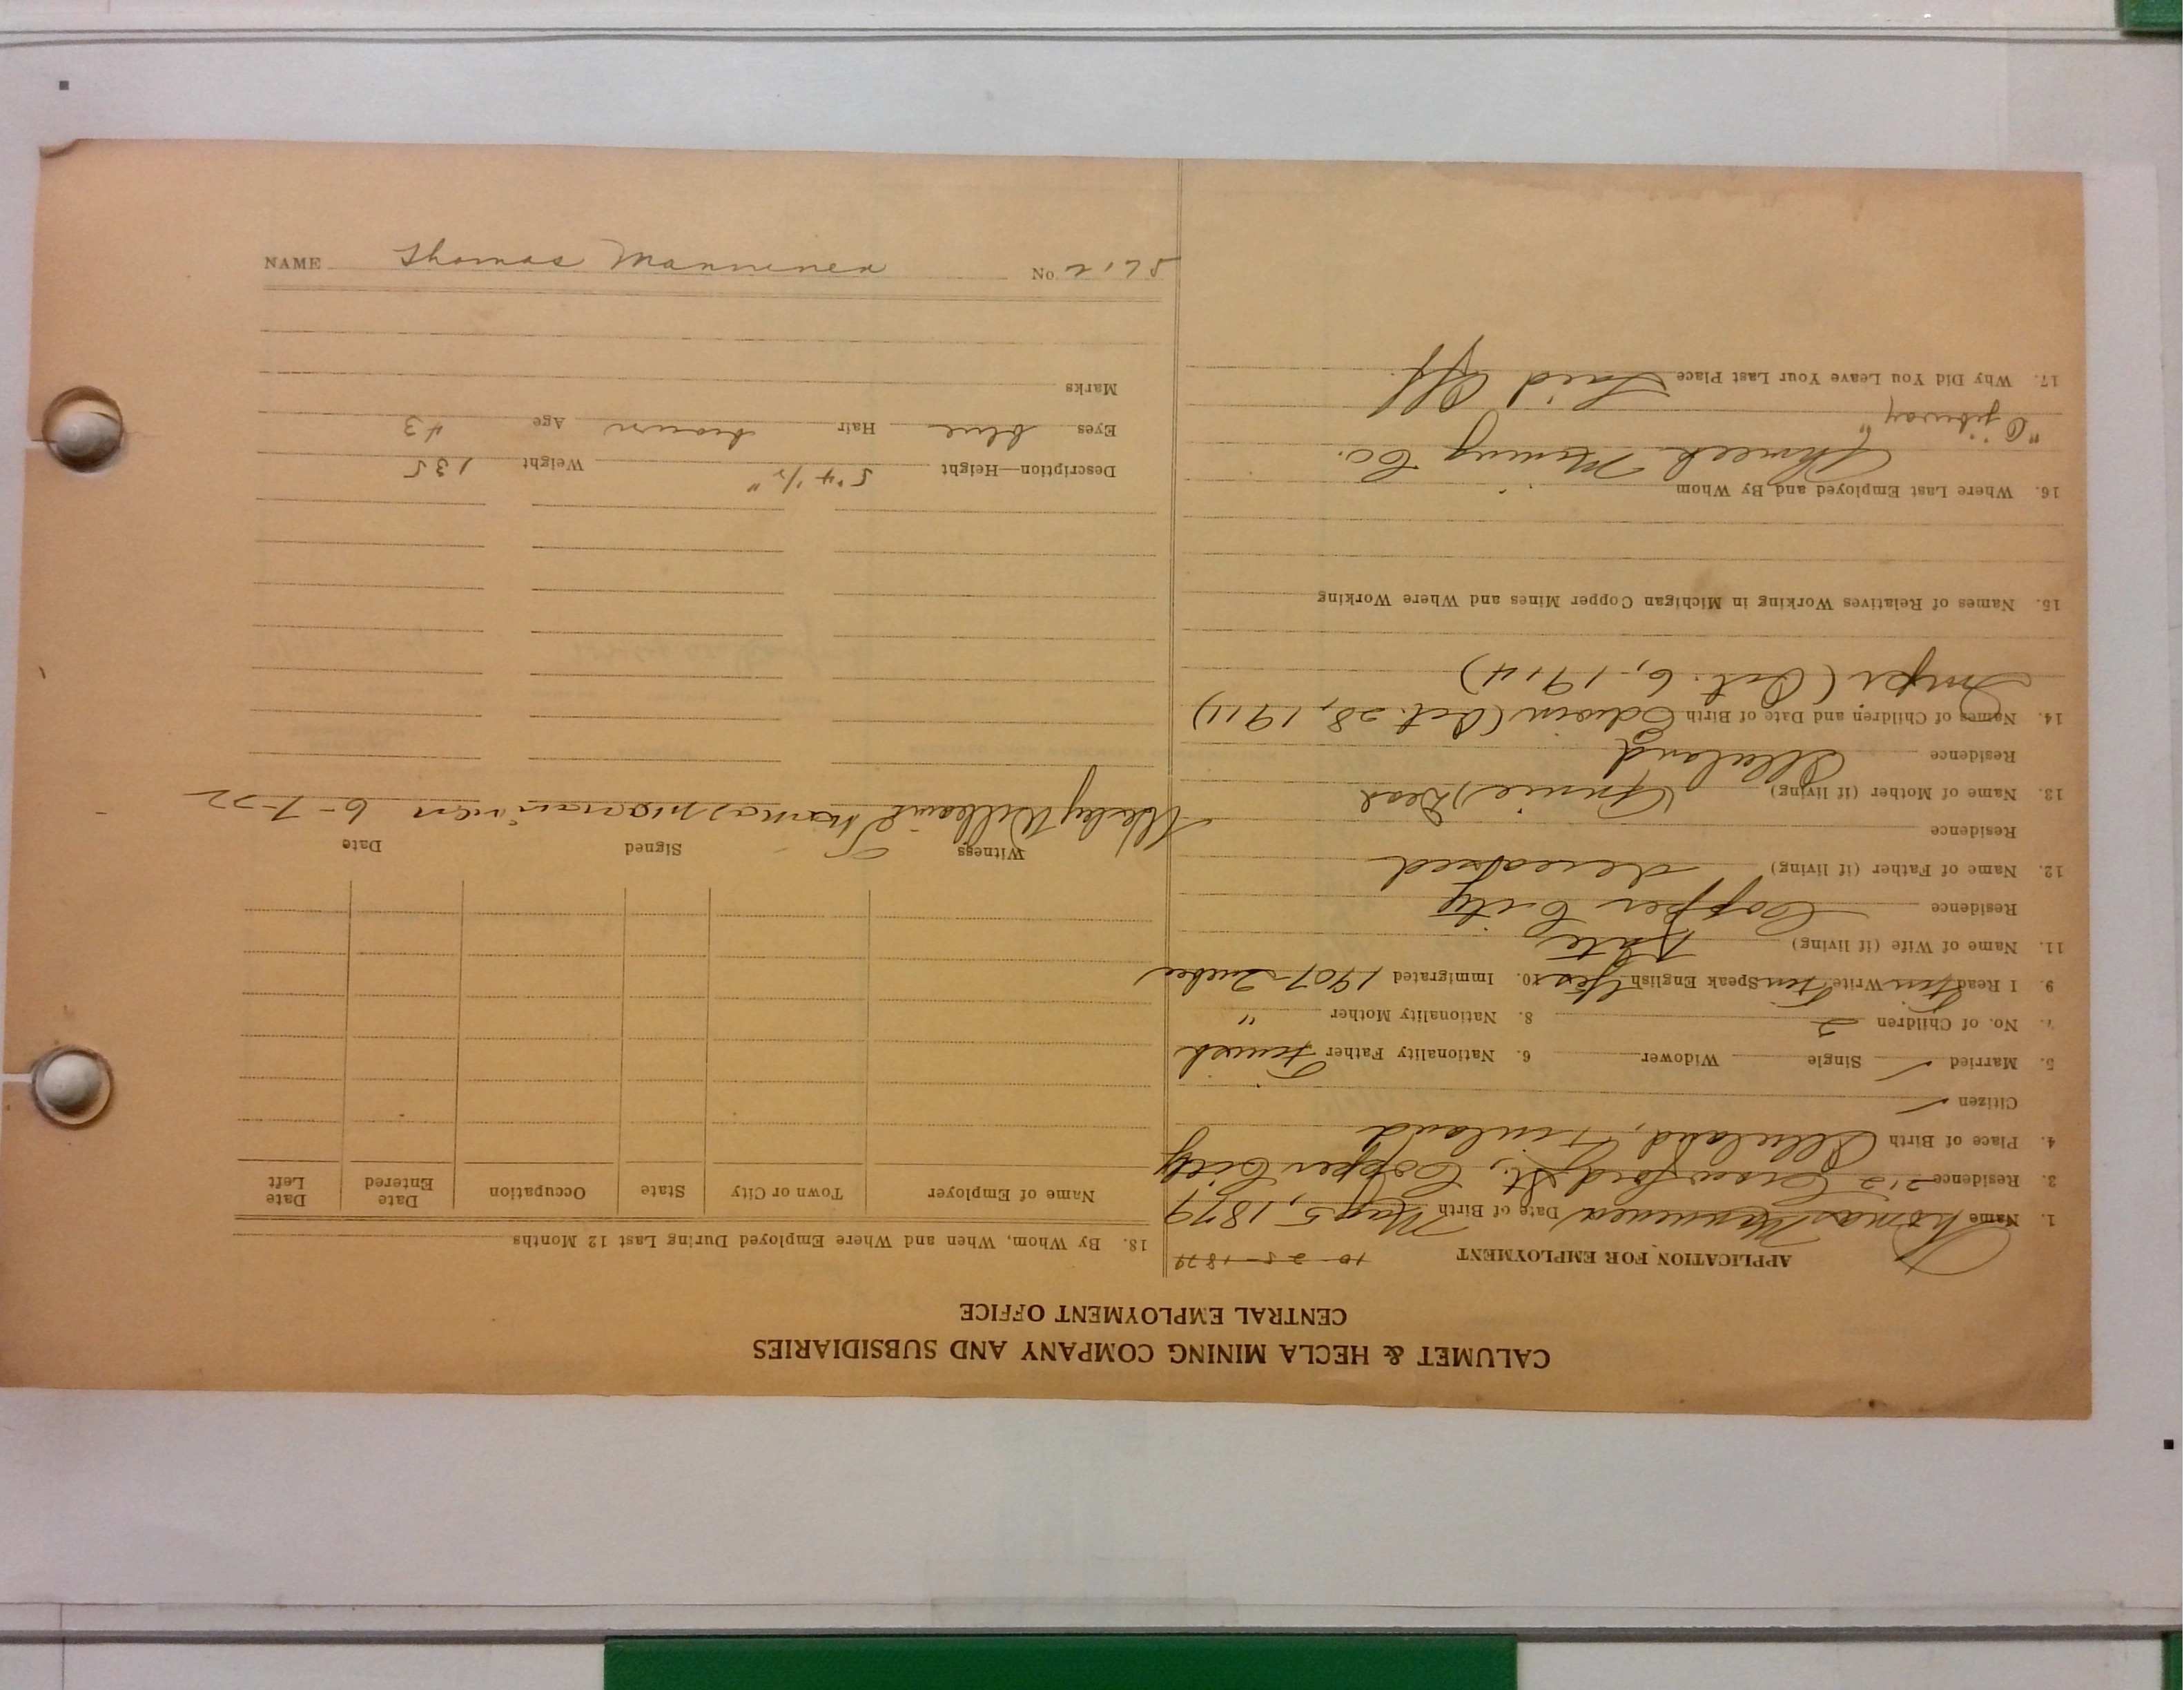 CALUMET & HECLA MINING COMPANY AND SUBSIDIARIES
CENTRAL EMPLOYMENT OFFICE
APPLICATION FOR EMPLOYMENT 10-25-1879
1. Name Thomas Manninen Date of Birth May 5, 1879
3. Residence Crawford St., Copper City
4. Place of Birth Finland
Citizen ✓
5. Married ✓ Single Widower 6. Nationality Father Finnish
7. No. of Children 2 8. Nationality Mother "
9. I Read Finn Write Finn Speak English Yes 10. Immigrated 1907 - Quebec
11. Name of Wife (if living) Kate
Residence Copper City
12. Name of Father (if living) deceased
Residence
13. Name of Mother (if living) (Annie) Dead
Residence
14. Names of Children and Date of Birth Edwin (Oct. 28, 1911)
(Oct. 6, 1914)
15. Names of Relatives Working in Michigan Copper Mines and Where Working
16. Where Last Employed and By Whom
Ahmeek Mining Co.
"Ojibway"
17. Why Did You Leave Your Last Place Laid Off.
18. By Whom, When and Where Employed During Last 12 Months
Name of Employer Town or City State Occupation Date Entered Date Left
Witness Signed Date
Wesley Thomas Manninen 6-7-22
Description—Height 5'4 1/2" Weight 135
Eyes blue Hair brown Age 43
Marks
NAME Thomas Manninen No.